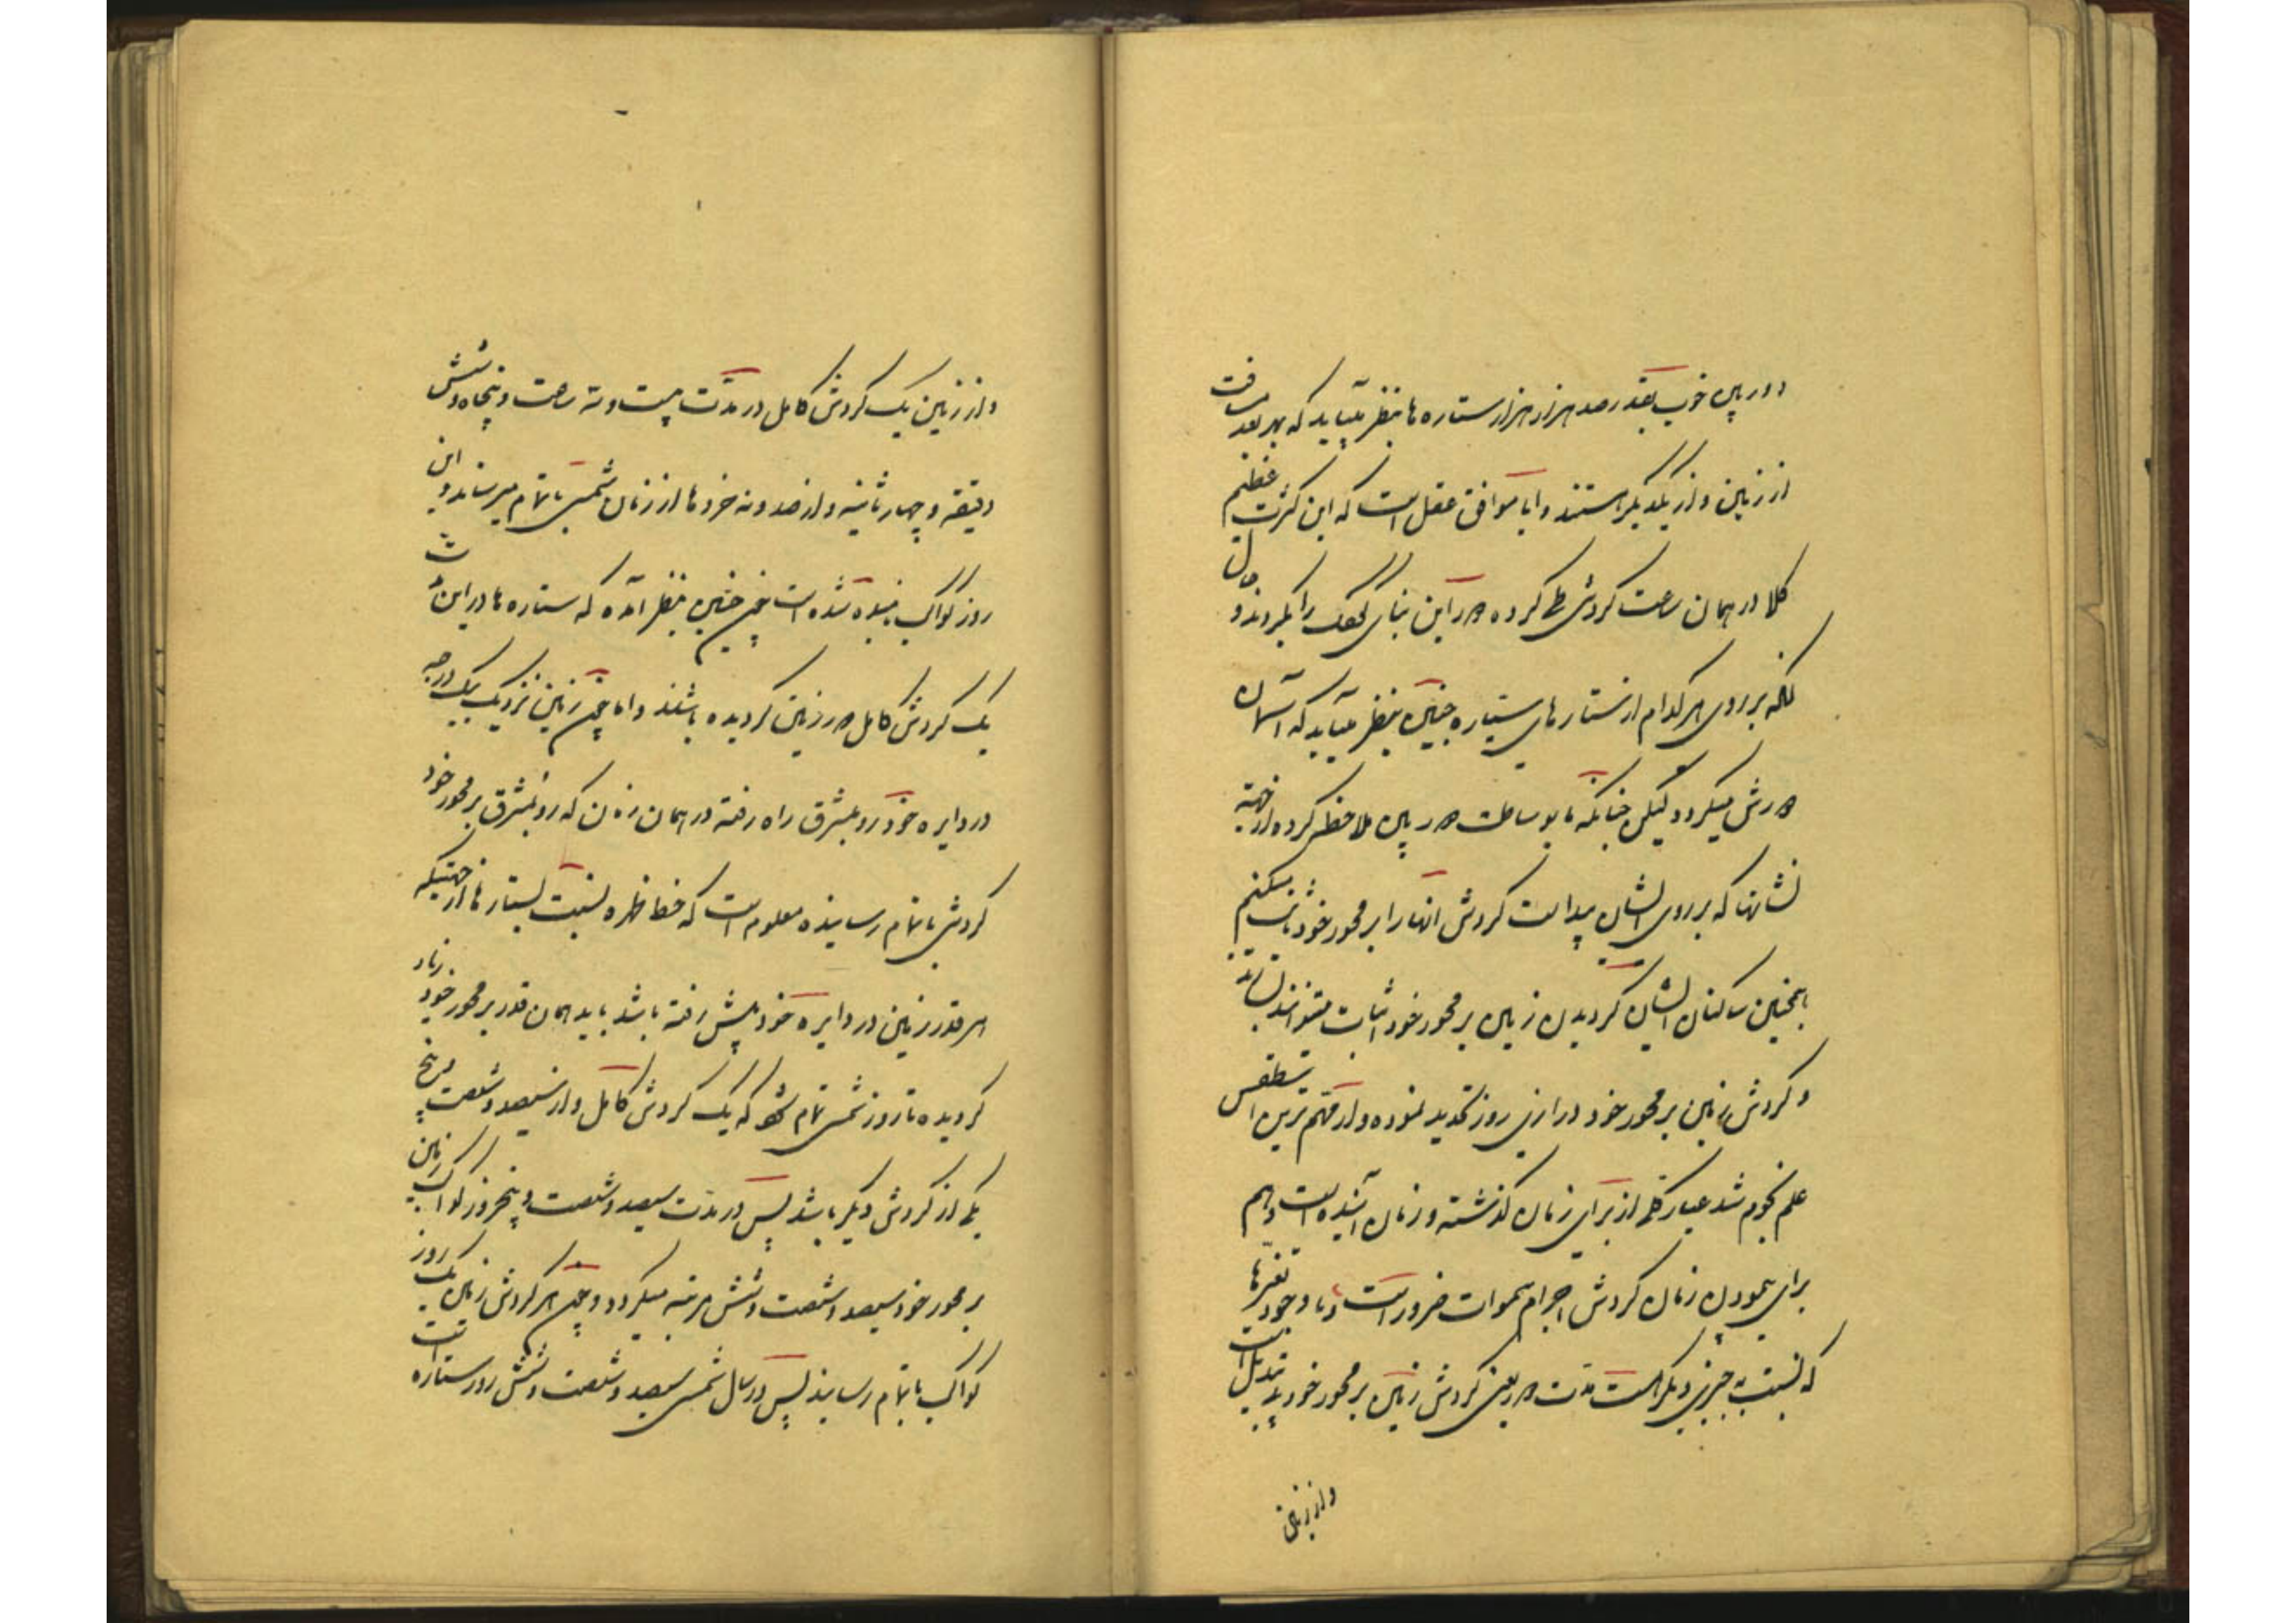 دوربین خوب بقدر صد هزار هزار ستاره ها بنظر میآید که بهر بعد مسافت
از زمین و از یکدیگر هستند و ایا موافق عقل است که این کثرت عظیم
کلا در همان ساعت کردش طی کرده در این بنای را بگیرند و حال
آنکه بر روی هر کدام از ستارهای سیاره چنین بنظر میآید که آسمان
دورش میکردد لیکن چنانکه ما بوساطت دوربین ملاحظه کرده از جهة
نشانها که بر روی ایشان پیدا است کردش انها را بر محور خود ثابت میکنیم
همچنین ساکنان ایشان کردیدن زمین بر محور خود اثبات میتوانند
و کردش زمین بر محور خود درازی روز تحدید نموده و از مهم ترین اسطقس
علم نجوم شد عیار کلی از برای زمان کذشته و زمان آینده است و هم
برای پیمودن زمان کردش اجرام سموات ضرور است و با وجود تغیرها
که نسبت به چیزی دیکر هست مدت دور یعنی کردش زمین بر محور خود بی تبدیل است
و از زمین
و از زمین یک کردش کامل در مدت بیست و سه ساعت و پنجاه و شش
دقیقه و چهار ثانیه و از صد و نه خردها از زمان شمسی باتمام میرساند و این
روز کواکب نامیده شده است چون چنین بنظر آمده که ستاره ها در این
یک کردش کامل دور زمین کردیده باشند و اما چون زمین نزدیک بیک درجه
در دایره خود رو بمشرق راه رفته در همان زمان که رو بمشرق بر محور خود
کردش باتمام رسانیده معلوم است که خط نسبت بستارها از جهتیکه
هر قدر زمین در دایره خود پیش رفته باشد باید همان قدر بر محور خود زیاد
کردیده تا روز شمسی تمام شود که یک کردش کامل و از سیصد و شصت و پنج
یکی از کردش دیکر باشد پس در مدت سیصد و شصت و پنج روز کواکب زمین
بر محور خود سیصد و شصت و شش مرتبه میکردد و چون هر کردش زمین یک روز
کواکب باتمام رساند پس در سال شمسی سیصد و شصت و شش روز ستاره است